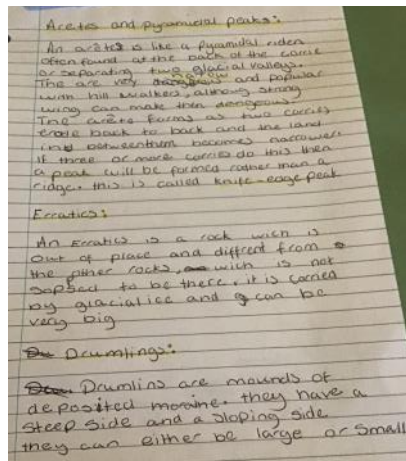 Aretes and pyramidal peaks:
An arêtes is like a pyramidal riden
often found at the back of the corrie
or separating two glacial valleys.
The are very narrow and popular
with hill walkers, althoug strong
wing can make then dengeous.
The arête forms as two corries
erode back to back and the land
inbetween them becomes narrower.
if three or more corries do this then
a peak will be formed rather than a
ridge. this is called knife-edge peak
Erratics:
An Erratics is a rock wich is
out of place and diffrent from
the other rocks, wich is not
sopsed to be there. it is carried
by glacial ice and can be
very big
Drumlings:
Drumlins are mounds of
deposited moraine. they have a
steep side and a sloping side
they can either be large or small